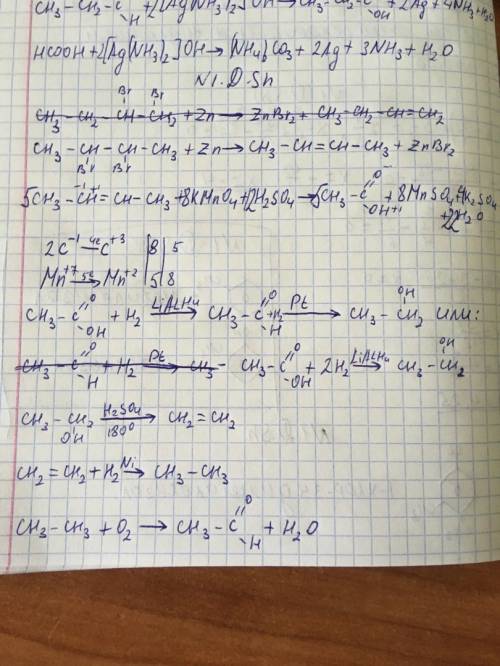 CH₃-CH₂-C-H + 2[Ag(NH₃)₂]OH → CH₃-CH₂-C-OH + 2Ag + 4NH₃ + H₂O
HCOOH + 2[Ag(NH₃)₂]OH → (NH₄)₂CO₃ + 2Ag + 3NH₃ + H₂O
Br Br
CH₃-CH₂-CH-CH₂ + Zn → ZnBr₂ + CH₃-CH₂-CH=CH₂
CH₃-CH-CH-CH₃ + Zn → CH₃-CH=CH-CH₃ + ZnBr₂
Br Br
5CH₃-CH=CH-CH₃ + 8KMnO₄ + 12H₂SO₄ → 5CH₃-C=O OH + 8MnSO₄ + 4K₂SO₄
+ 12H₂O
2C⁻¹ -4e→ C⁺³ | 8 | 5
Mn⁺⁷ 5e→ Mn⁺² | 5 | 8
CH₃-C=O OH + H₂ LiAlH₄→ CH₃-C=O H + H₂ Pt→ CH₃-CH₂ OH или:
CH₃-C=O H + H₂ Pt→ CH₃- CH₃-C=O OH + 2H₂ LiAlH₄→ CH₃-CH₂ OH
CH₃-CH₂ OH H₂SO₄ 180°→ CH₂=CH₂
CH₂=CH₂ + H₂ Ni→ CH₃-CH₃
CH₃-CH₃ + O₂ → CH₃-C=O H + H₂O